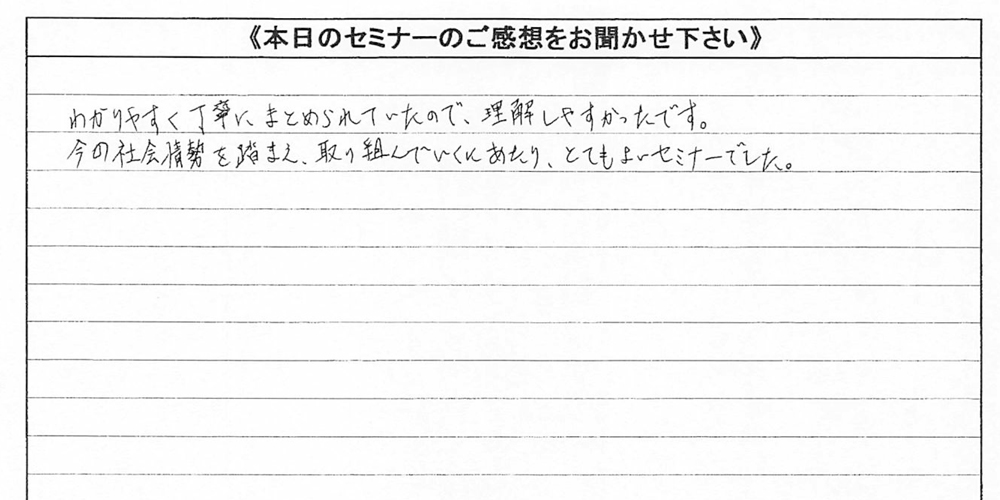 《本日のセミナーのご感想をお聞かせ下さい》
わかりやすく丁寧にまとめられていたので、理解しやすかったです。
今の社会情勢を踏まえ、取り組んでいくにあたり、とてもよいセミナーでした。